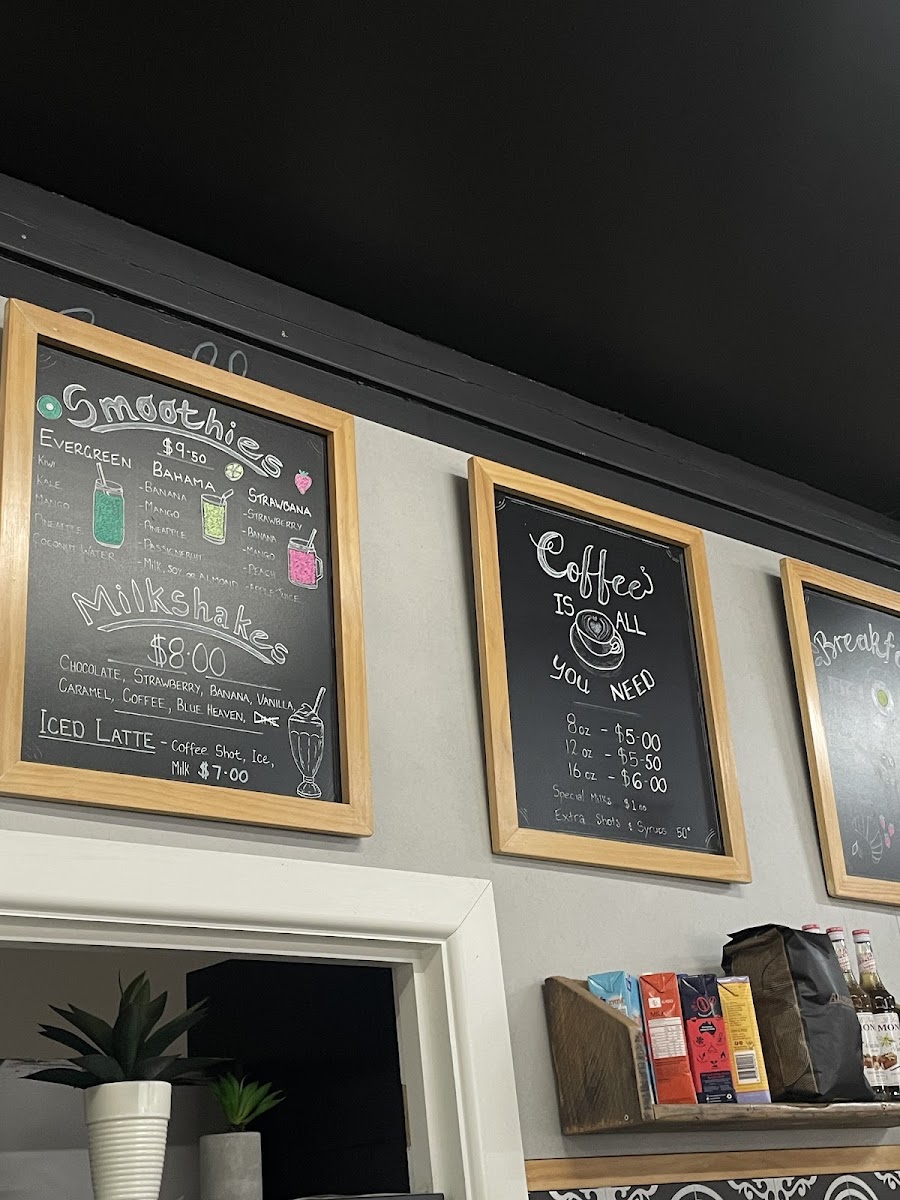 Smoothies
$9.50
EVERGREEN
KIWI
KALE
MANGO
PINEAPPLE
COCONUT WATER
BAHAMA
- BANANA
- MANGO
- PINEAPPLE
- PASSIONFRUIT
- MILK, SOY OR ALMOND
STRAWBANA
- STRAWBERRY
- BANANA
- MANGO
- PEACH
- APPLE JUICE
Milkshakes
$8.00
CHOCOLATE, STRAWBERRY, BANANA, VANILLA,
CARAMEL, COFFEE, BLUE HEAVEN,
ICED LATTE - Coffee Shot, Ice,
Milk $7.00
Coffee
IS ALL
YOU NEED
8oz - $5.00
12 oz - $5.50
16 oz - $6.00
Special Milks $1.00
Extra Shots & Syrups 50¢
Breakf
MILK
MON
MON